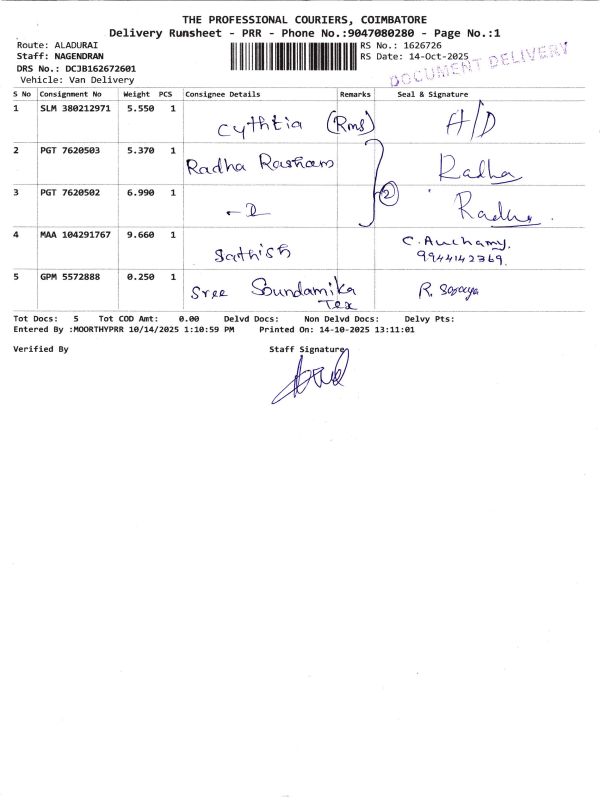 THE PROFESSIONAL COURIERS, COIMBATORE
Delivery Runsheet - PRR - Phone No.:9047080280 - Page No.:1
Route: ALADURAI RS No.: 1626726
Staff: NAGENDRAN RS Date: 14-Oct-2025
DRS No.: DCJB162672601
Vehicle: Van Delivery
DOCUMENT DELIVERY
S No Consignment No Weight PCS Consignee Details Remarks Seal & Signature
1 SLM 380212971 5.550 1 Cythtia (Rms) H/D
2 PGT 7620503 5.370 1 Radha Radha
3 PGT 7620502 6.990 1 2 Radha
4 MAA 104291767 9.660 1 Sathish C. 
9944142369.
5 GPM 5572888 0.250 1 Sree Soundamika R.
Tex
Tot Docs: 5 Tot COD Amt: 0.00 Delvd Docs: Non Delvd Docs: Delvy Pts:
Entered By :MOORTHYPRR 10/14/2025 1:10:59 PM Printed On: 14-10-2025 13:11:01
Verified By Staff Signature